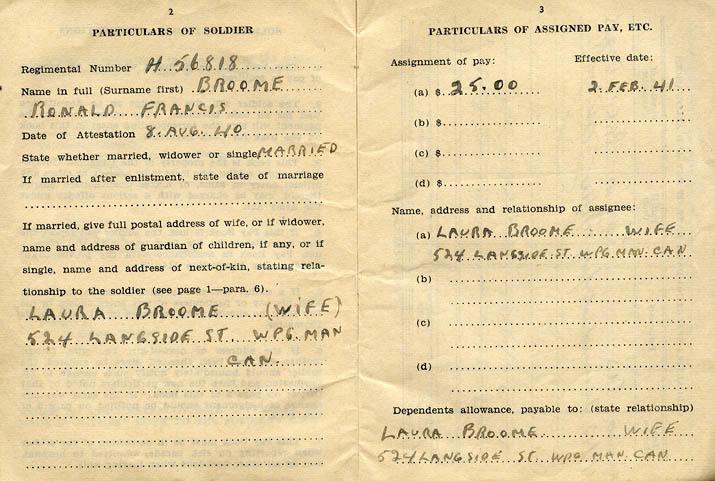 2
PARTICULARS OF SOLDIER
Regimental Number H 56818
Name in full (Surname first) BROOME
RONALD FRANCIS
Date of Attestation 8. AUG. 40
State whether married, widower or single MARRIED
If married after enlistment, state date of marriage
If married, give full postal address of wife, or if widower,
name and address of guardian of children, if any, or if
single, name and address of next-of-kin, stating rela-
tionship to the soldier (see page 1—para. 6).
LAURA BROOME (WIFE)
524 LANGSIDE ST. WPG MAN
CAN.
3
PARTICULARS OF ASSIGNED PAY, ETC.
Assignment of pay: Effective date:
(a) $ 25.00 2 FEB. 41
(b) $
(c) $
(d) $
Name, address and relationship of assignee:
(a) LAURA BROOME WIFE
524 LANGSIDE ST WPG MAN CAN
(b)
(c)
(d)
Dependents allowance, payable to: (state relationship)
LAURA BROOME WIFE
524 LANGSIDE ST WPG MAN CAN